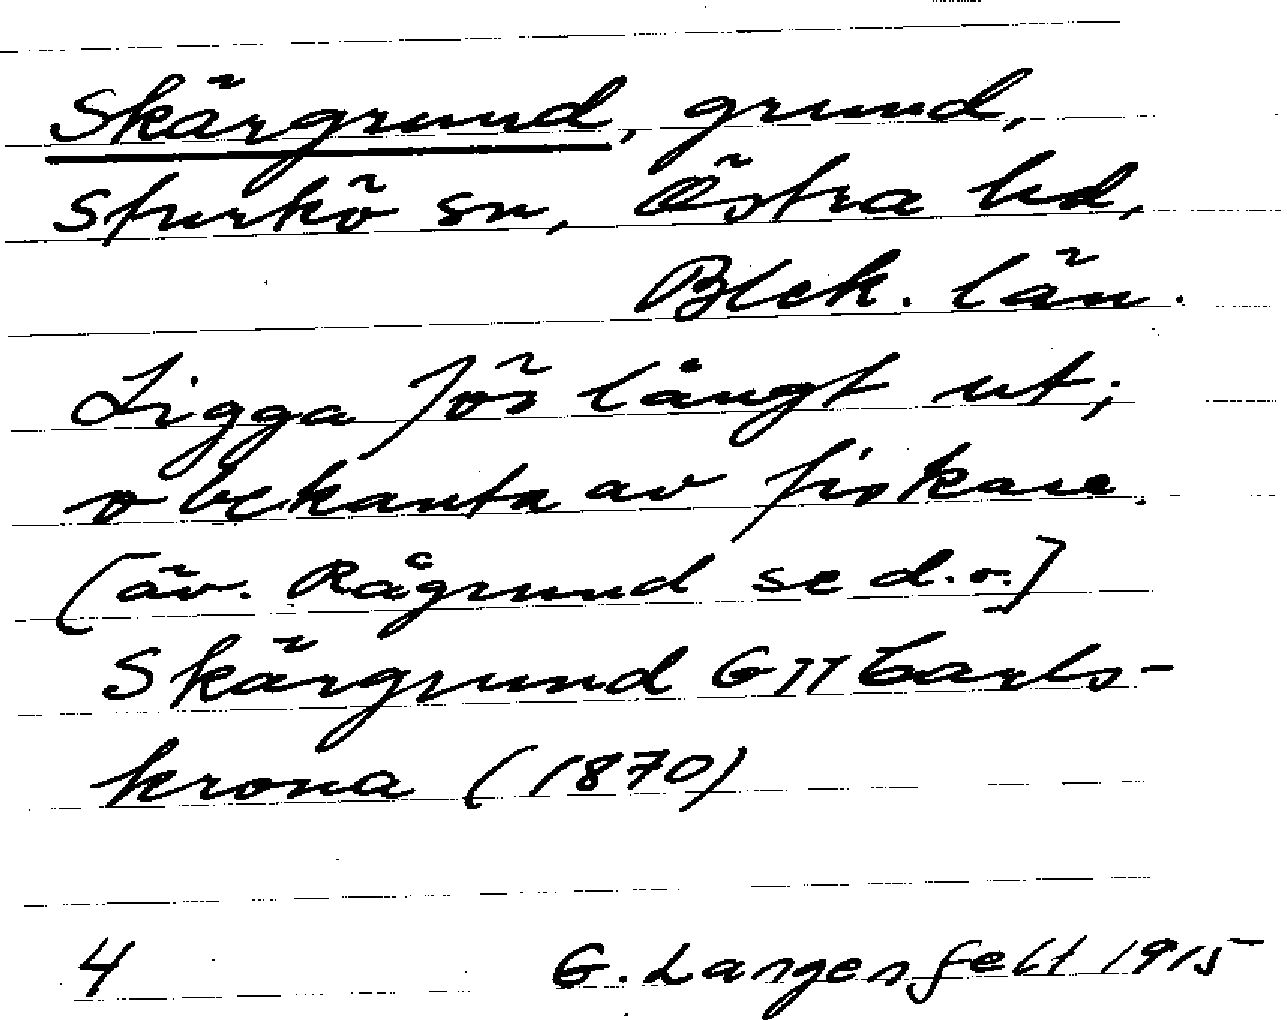 Skärgrund, grund,
Sturkö sn, Östra hd,
Blek. län.
Ligga för långt ut;
obekanta av fiskare.
[äv. Rågrund se d.o.]
Skärgrund GII Carls-
krona (1870)
4 G. Langenfelt 1915